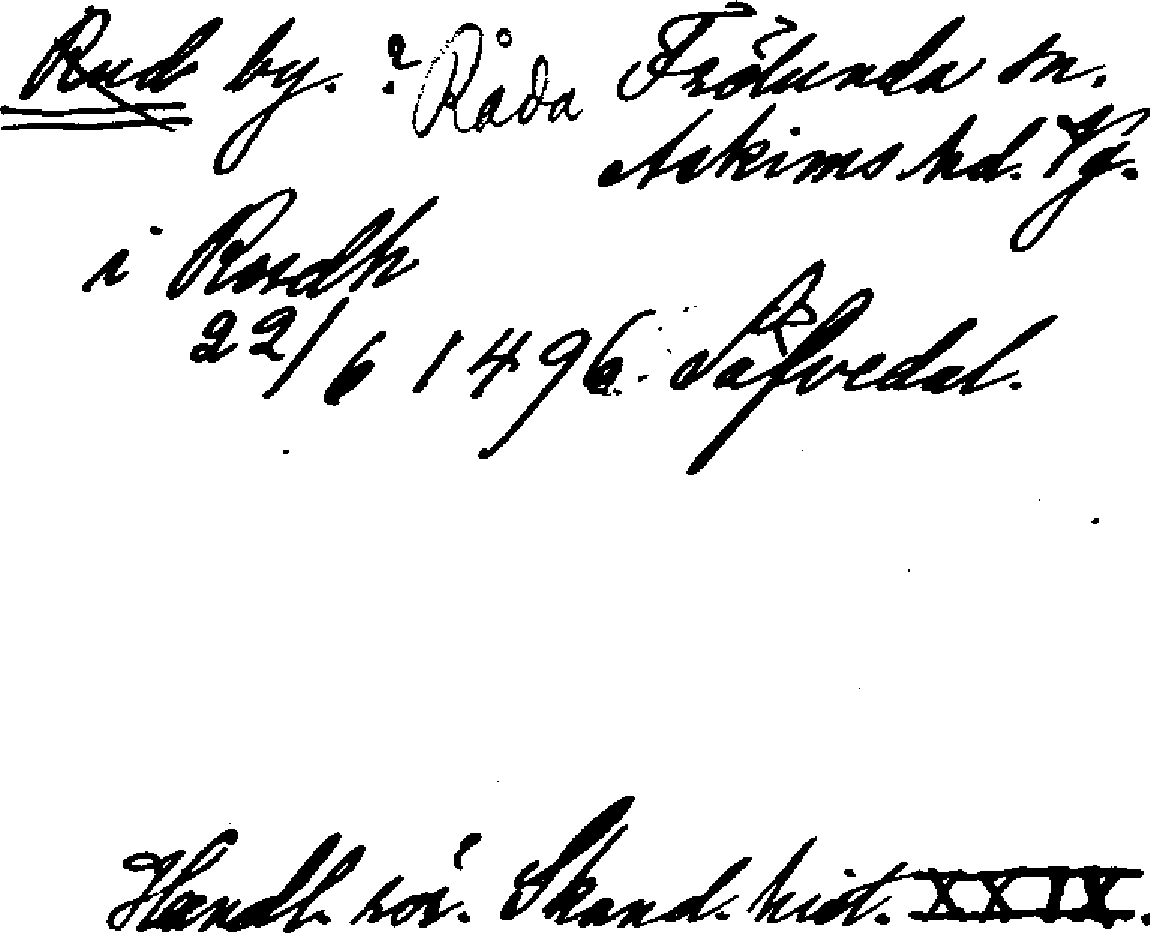 Rud by. ? Råda Frölunda sn.
Askims hd. Vg.
i Rvdh
22/6 1496. Säfvedal.
Handl. rör. Skand. hist. XXIX.